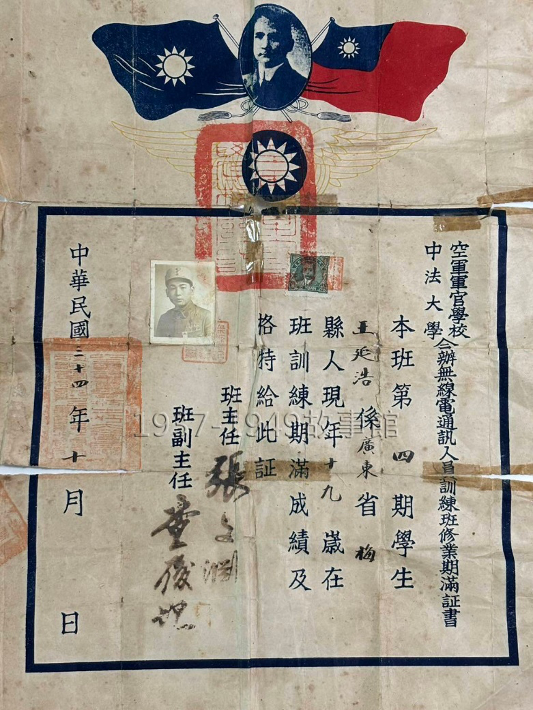 空軍軍官學校
中法大學
合辦無線電通訊人員訓練班修業期滿証書
本班第四期學生
王延浩係廣東省梅
縣人現年十九歲在
班訓練期滿成績及
格特給此証
班主任 張文淵
班副主任
中華民國三十四年十月 日
1937-1949故事館